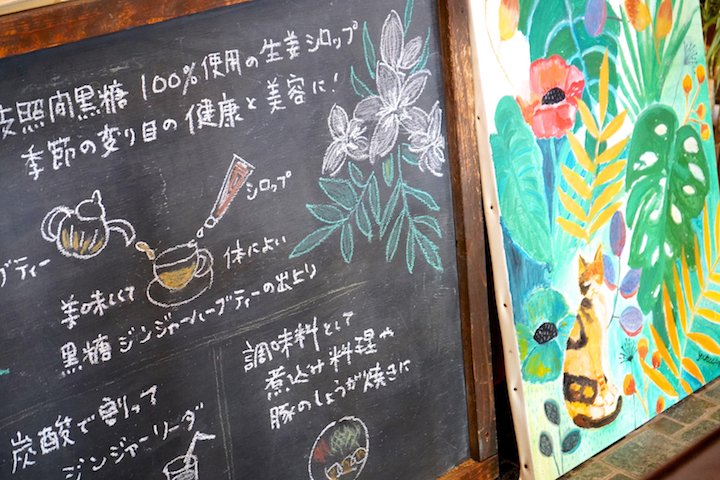 安照間黒糖 100%使用の生姜シロップ
季節の変り目の健康と美容に!
シロップ
ブティー
美味しくて 体によい
黒糖ジンジャーハーブティーの出上り
調味料として
煮込み料理や
豚のしょうが焼きに
炭酸で割って
ジンジャーリーダ